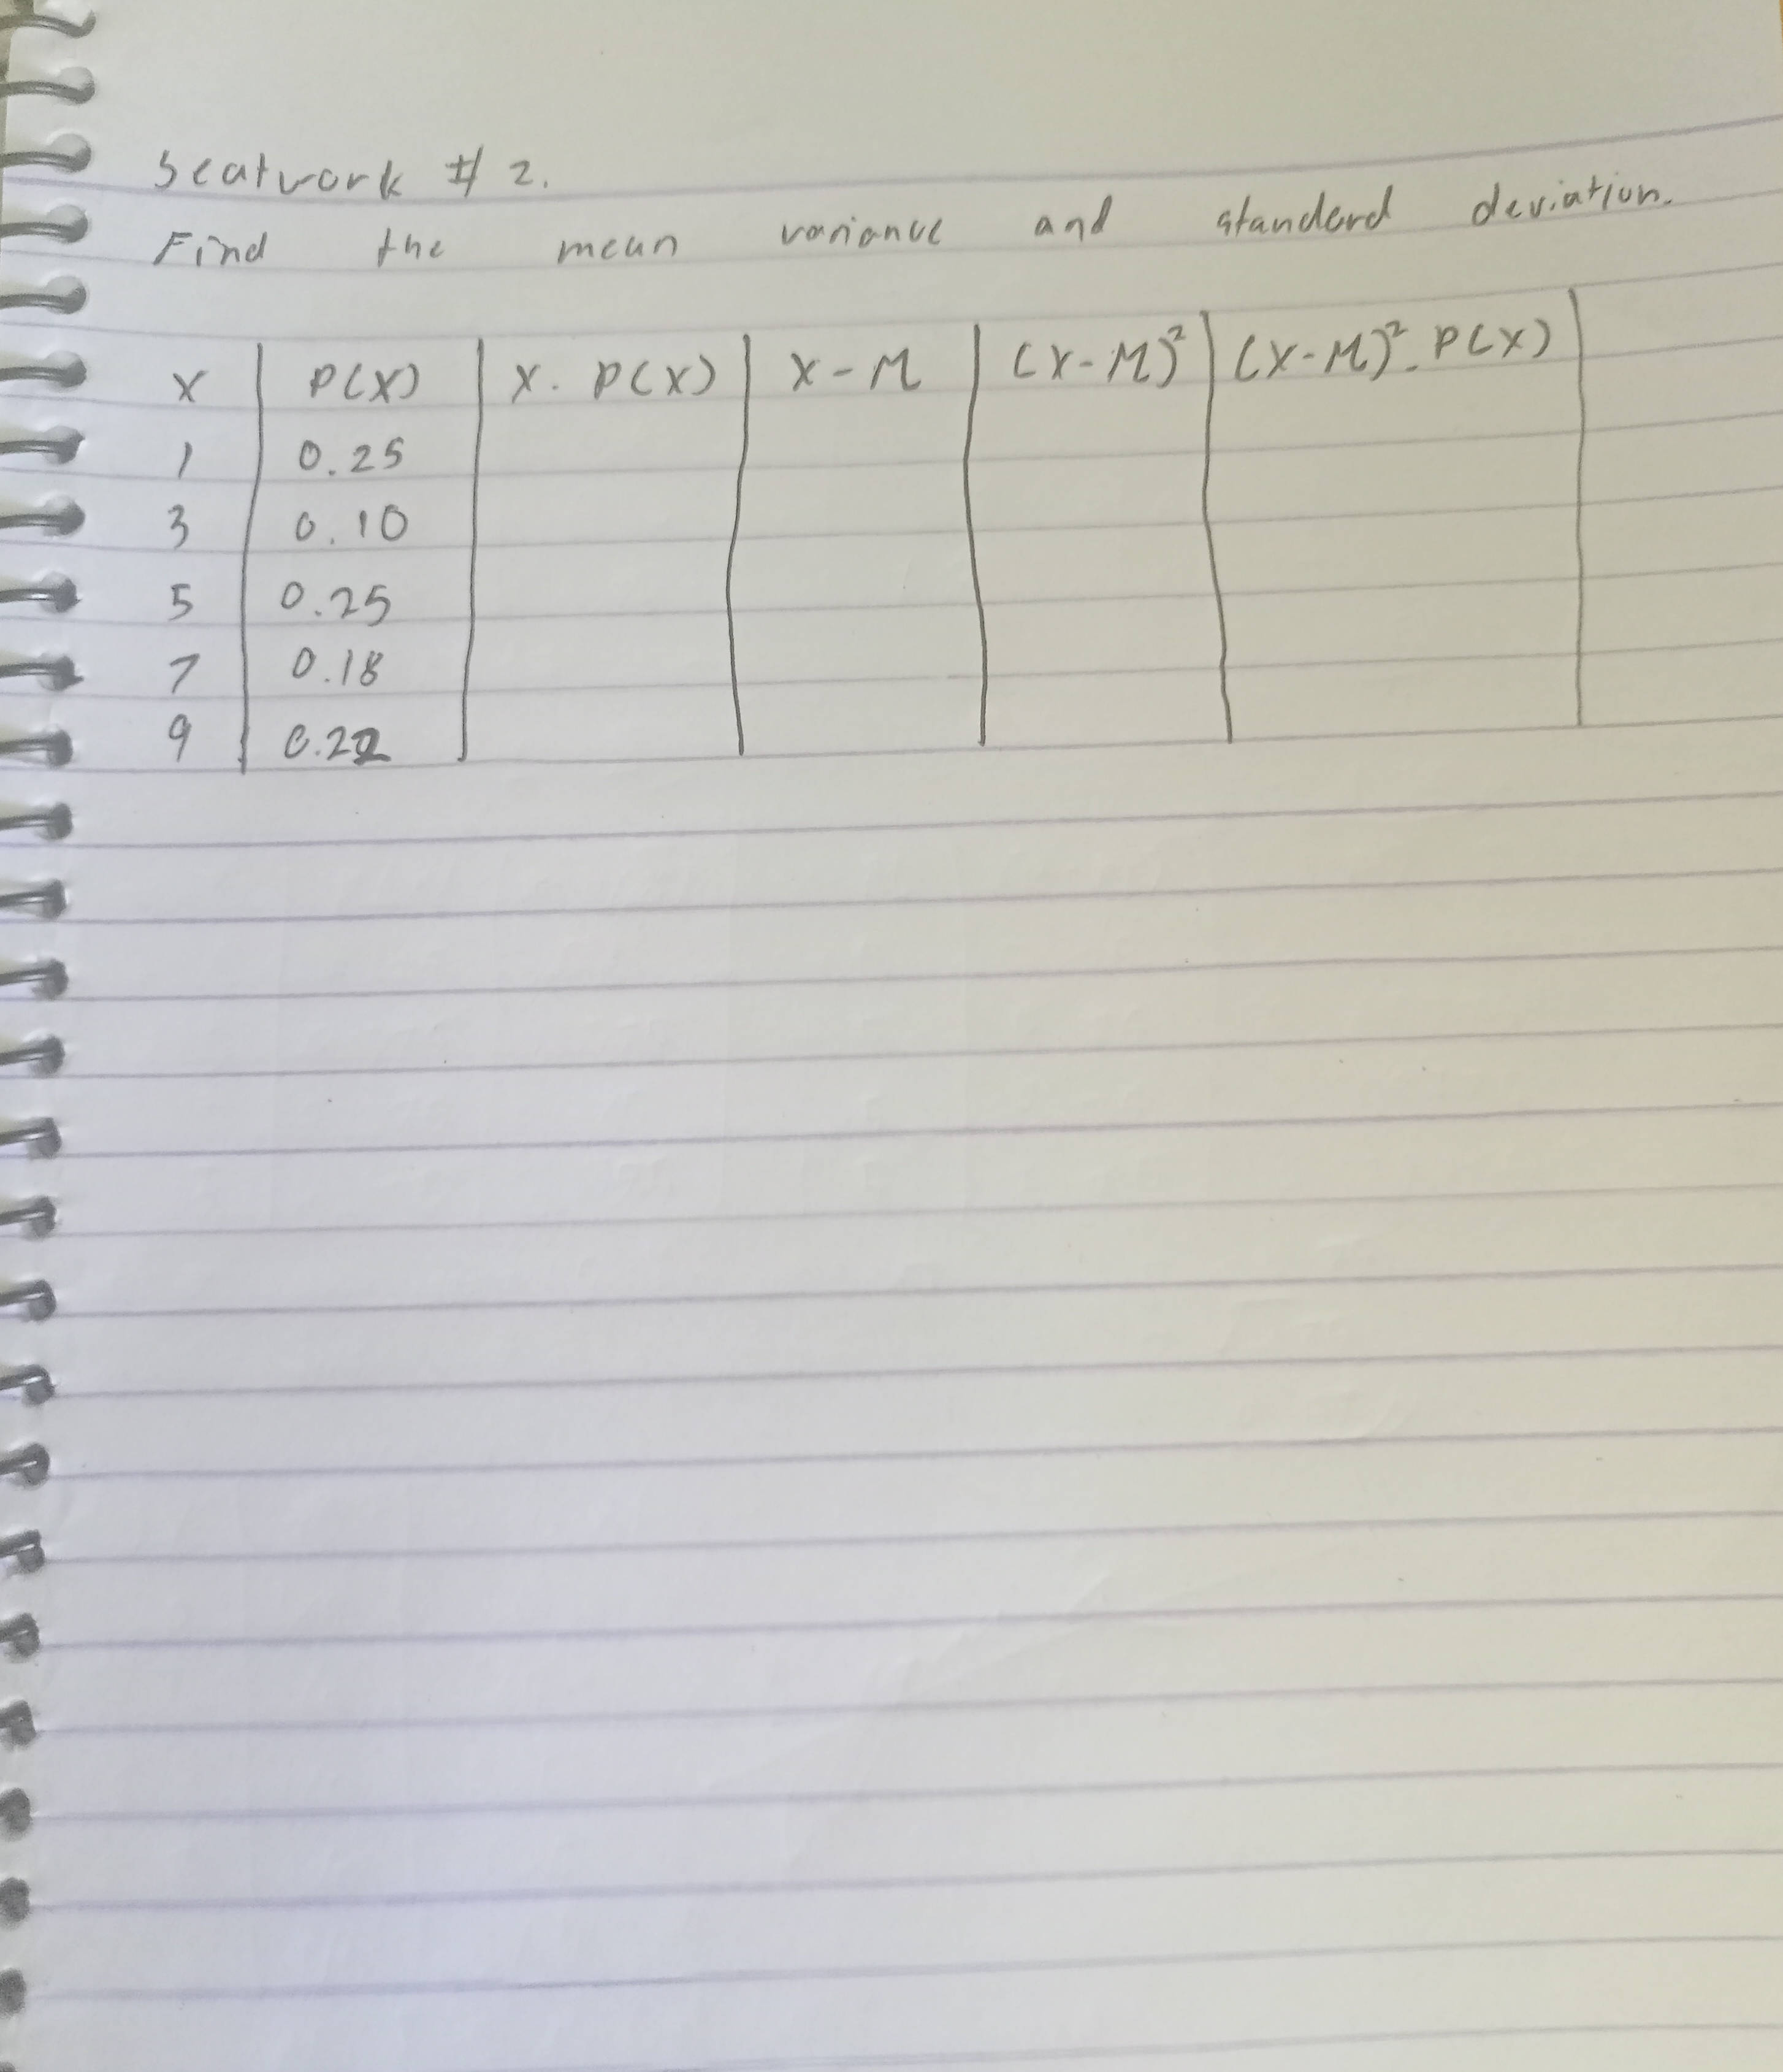 Seatwork # 2.
Find the mean variance and standard deviation.
X P(X) X . P(X) X - M (X - M)² (X - M)² . P(X)
1 0.25
3 0.10
5 0.25
7 0.18
9 0.22